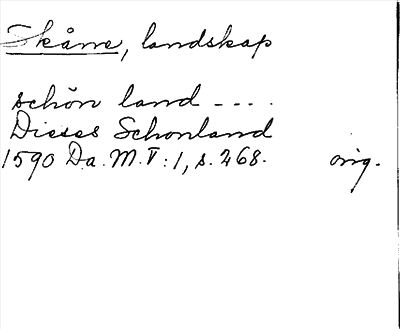 Skåne, landskap
schön land ----.
Dieses Schonland
1590 Da. M. V:1, s. 268. orig.